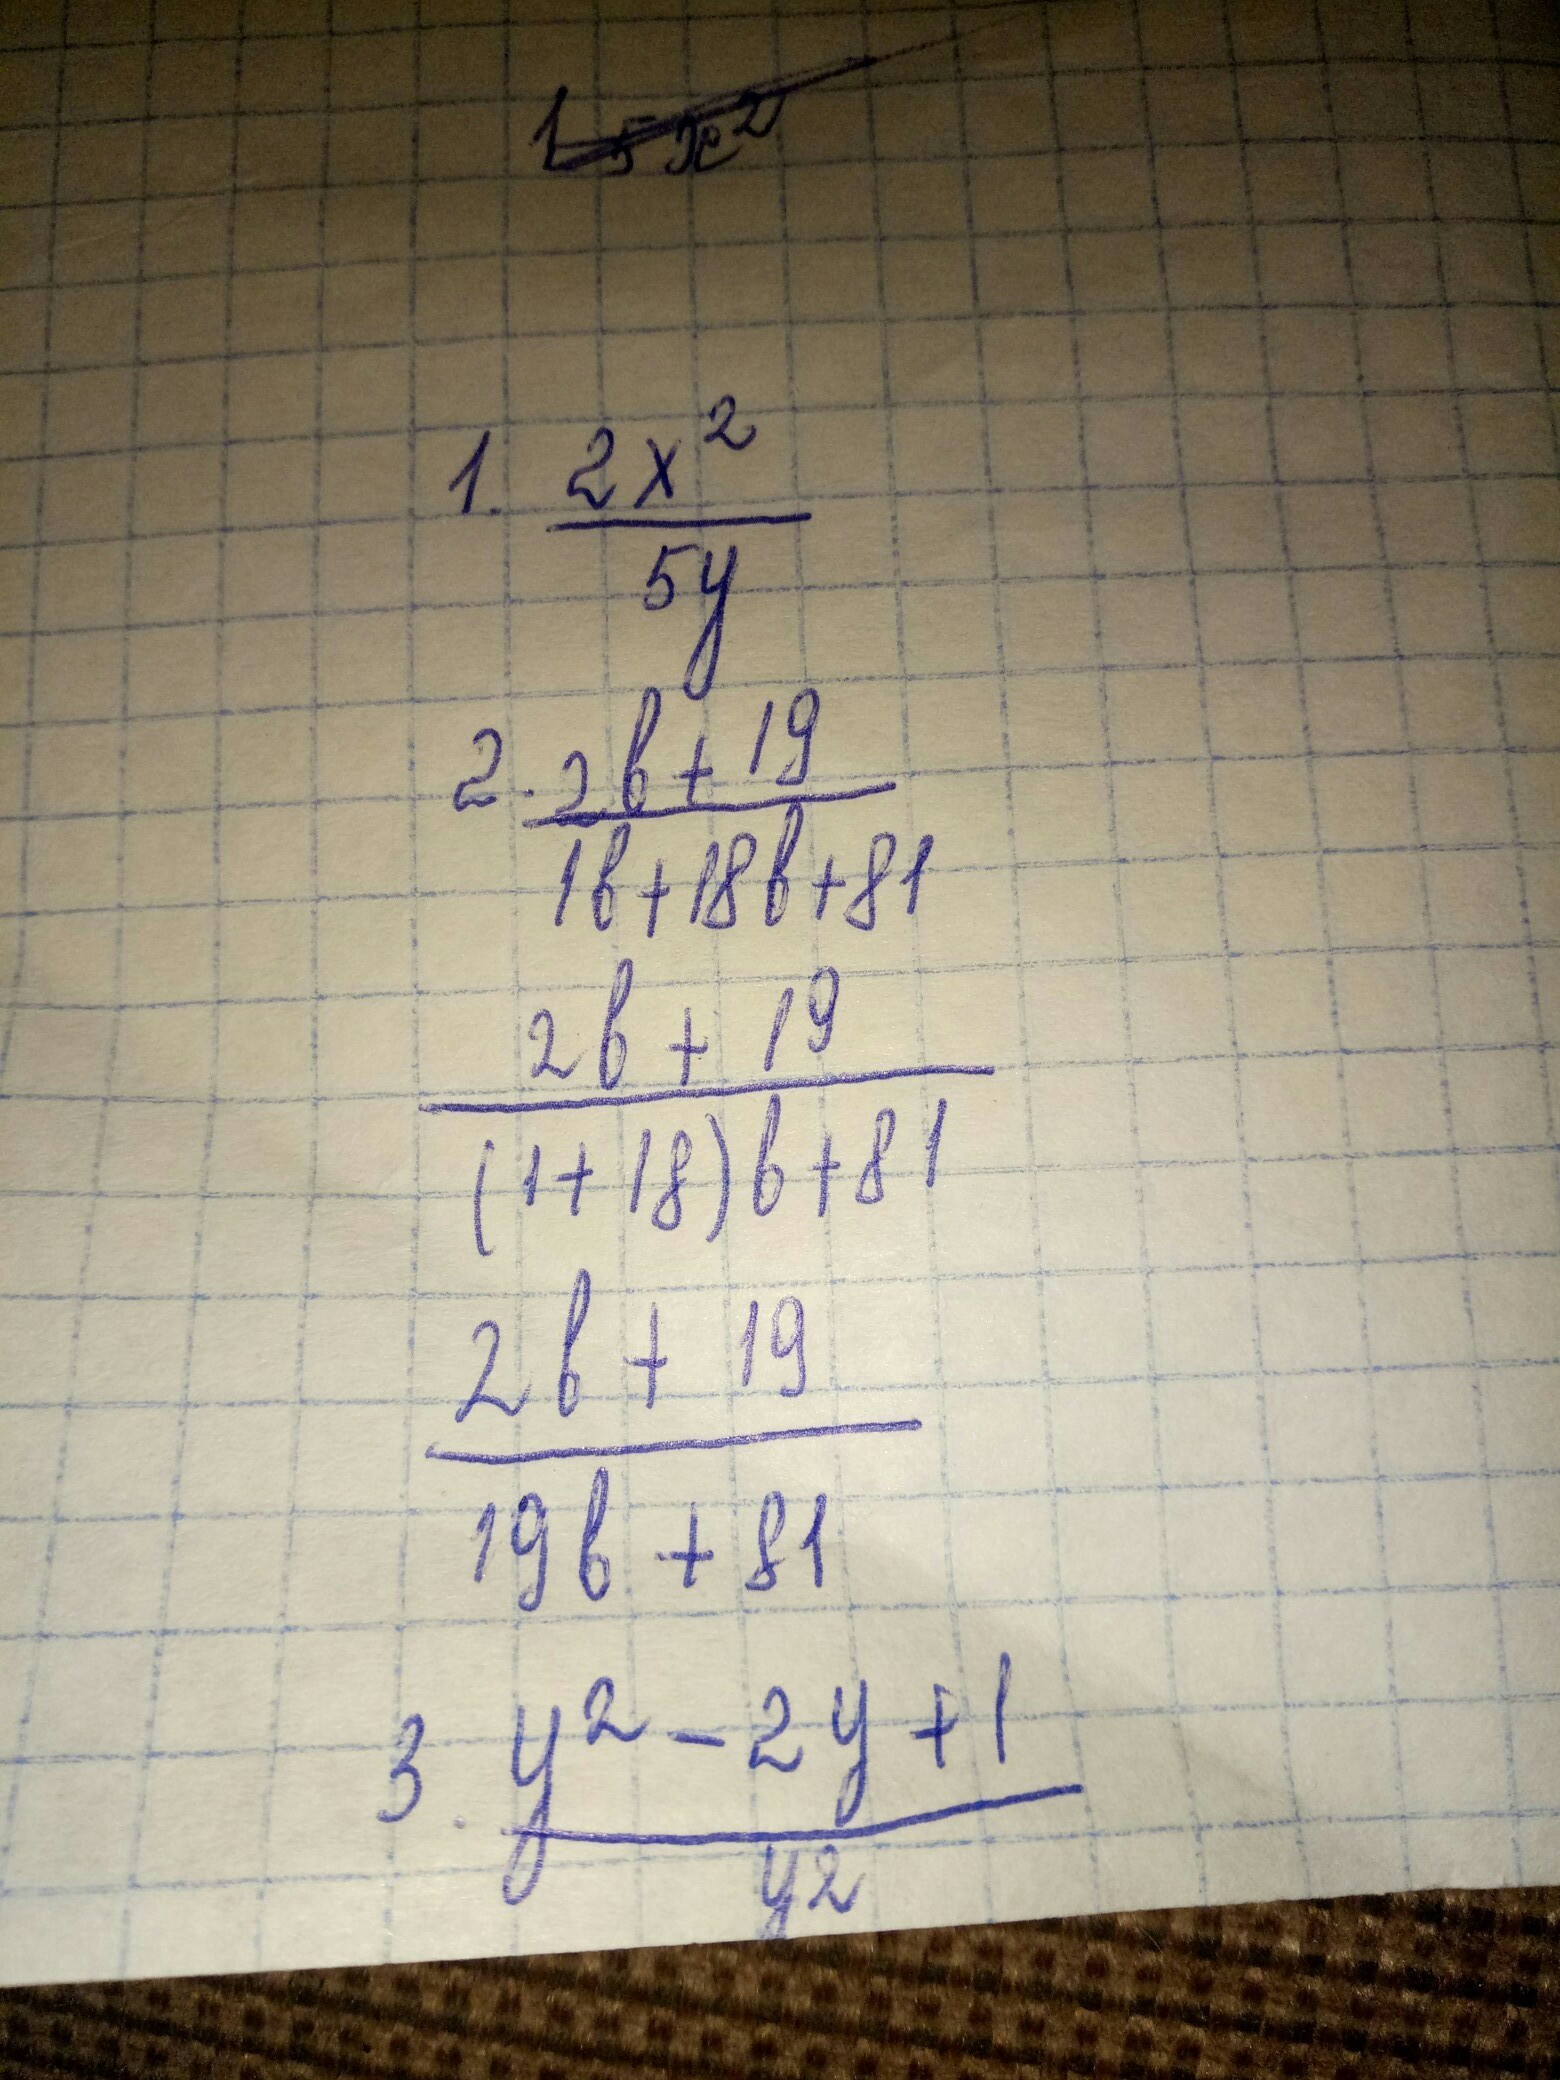 1. 2x²
5y
2. 2b + 19
1b + 18b + 81
2b + 19
(1 + 18)b + 81
2b + 19
19b + 81
3. y² - 2y + 1
y2